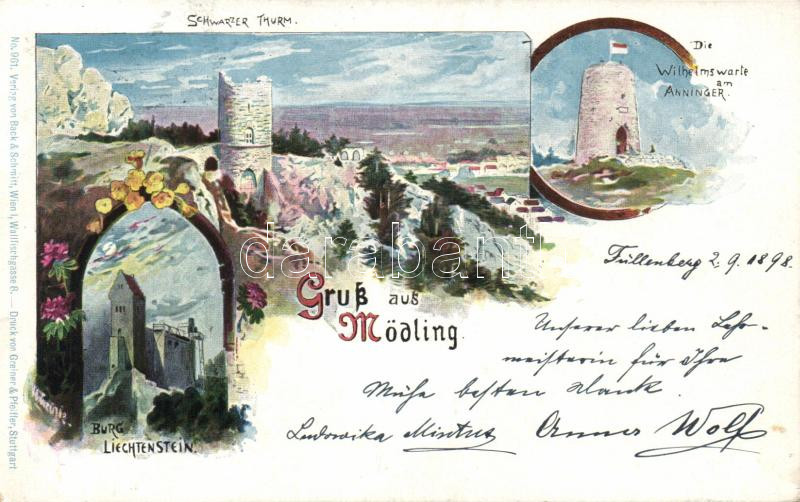 SCHWARZER THURM.
Die
Wilhelmswarte
am
ANNINGER.
No. 961. Verlag von Back & Schmitt, Wien I, Wallfischgasse 8. — Druck von Greiner & Pfeiffer, Stuttgart
darabanth.com
Gruß aus
Mödling.
BURG
LIECHTENSTEIN.
Füllenberg 2. 9. 1898.
Unserer lieben Lehr-
meisterin für Ihre
Mühe besten Dank
Ludowika Mintus Anna Wolf